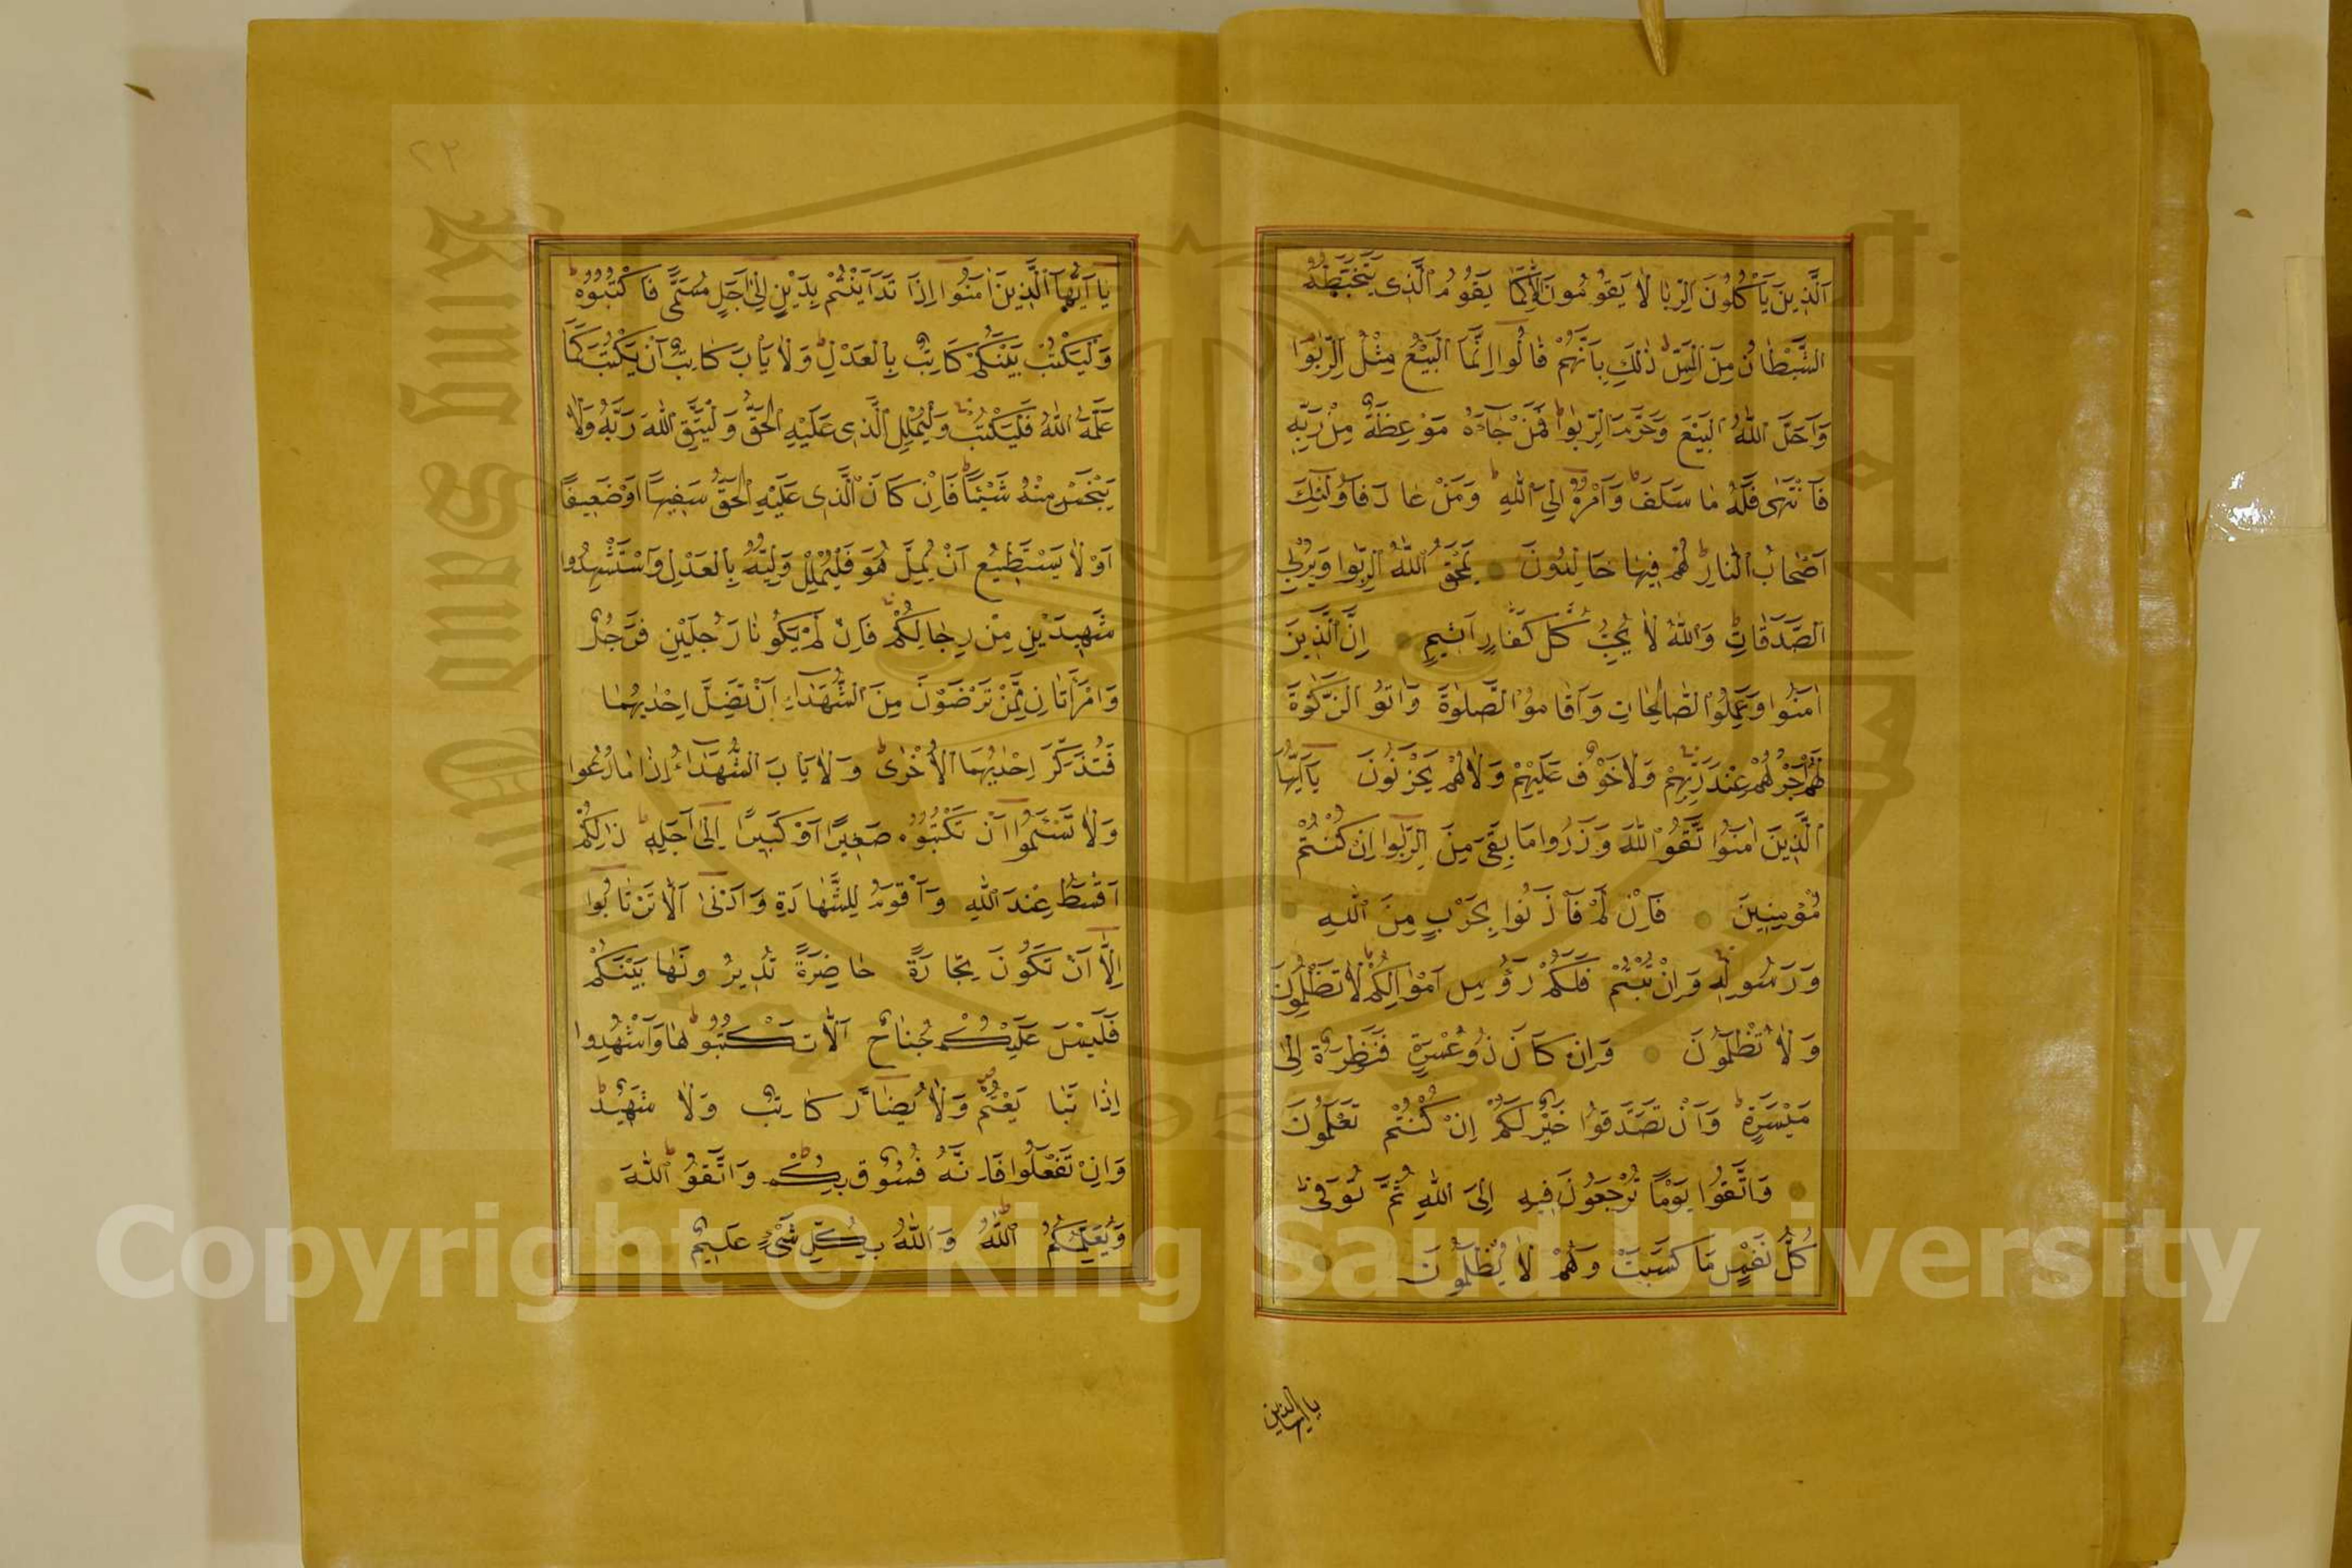 اَلَّذِينَ يَاْكُلُونَ الرِّبٰا لَا يَقُومُونَ اِلَّا كَمَا يَقُومُ الَّذِى يَتَخَبَّطُهُ
الشَّيْطَانُ مِنَ الْمَسِّ ذٰلِكَ بِاَنَّهُمْ قَالُوا اِنَّمَا الْبَيْعُ مِثْلُ الرِّبٰوا
وَاَحَلَّ اللّٰهُ الْبَيْعَ وَحَرَّمَ الرِّبٰوا فَمَنْ جَاءَهُ مَوْعِظَةٌ مِنْ رَبِّهِ
فَانْتَهٰى فَلَهُ مَا سَلَفَ وَاَمْرُهُ اِلَى اللّٰهِ وَمَنْ عَادَ فَاُولٰئِكَ
اَصْحَابُ النَّارِ هُمْ فِيهَا خَالِدُونَ يَمْحَقُ اللّٰهُ الرِّبٰوا وَيُرْبِى
الصَّدَقَاتِ وَاللّٰهُ لَا يُحِبُّ كُلَّ كَفَّارٍ اَثِيمٍ اِنَّ الَّذِينَ
اٰمَنُوا وَعَمِلُوا الصَّالِحَاتِ وَاَقَامُوا الصَّلٰوةَ وَاٰتَوُ الزَّكٰوةَ
لَهُمْ اَجْرُهُمْ عِنْدَ رَبِّهِمْ وَلَا خَوْفٌ عَلَيْهِمْ وَلَا هُمْ يَحْزَنُونَ يَا اَيُّهَا
الَّذِينَ اٰمَنُوا تَّقُوا اللّٰهَ وَذَرُوا مَا بَقِىَ مِنَ الرِّبٰوا اِنْ كُنْتُمْ
مُؤْمِنِينَ فَاِنْ لَمْ فَاْذَنُوا بِحَرْبٍ مِنَ اللّٰهِ
وَرَسُولِهِ وَاِنْ تُبْتُمْ فَلَكُمْ رَؤُسِ اَمْوَالِكُمْ لَا تَظْلِمُونَ
وَلَا تُظْلَمُونَ وَاِنْ كَانَ ذُو عُسْرَةٍ فَنَظِرَةٌ اِلٰى
مَيْسَرَةٍ وَاَنْ تَصَدَّقُوا خَيْرٌ لَكُمْ اِنْ كُنْتُمْ تَعْلَمُونَ
وَاتَّقُوا يَوْمًا تُرْجَعُونَ فِيهِ اِلَى اللّٰهِ ثُمَّ تُوَفّٰى
كُلُّ نَفْسٍ مَا كَسَبَتْ وَهُمْ لَا يُظْلَمُونَ
يا ايها الذين
٢٣
يَا اَيُّهَا الَّذِينَ اٰمَنُوا اِذَا تَدَايَنْتُمْ بِدَيْنٍ اِلٰى اَجَلٍ مُسَمًّى فَاكْتُبُوهُ
وَلْيَكْتُبْ بَيْنَكُمْ كَاتِبٌ بِالْعَدْلِ وَلَا يَاْبَ كَاتِبٌ اَنْ يَكْتُبَ كَمَا
عَلَّمَهُ اللّٰهُ فَلْيَكْتُبْ وَلْيُمْلِلِ الَّذِى عَلَيْهِ الْحَقُّ وَلْيَتَّقِ اللّٰهَ رَبَّهُ وَلَا
يَبْخَسْ مِنْهُ شَيْئًا فَاِنْ كَانَ الَّذِى عَلَيْهِ الْحَقُّ سَفِيهًا اَوْ ضَعِيفًا
اَوْ لَا يَسْتَطِيعُ اَنْ يُمِلَّ هُوَ فَلْيُمْلِلْ وَلِيُّهُ بِالْعَدْلِ وَاسْتَشْهِدُوا
شَهِيدَيْنِ مِنْ رِجَالِكُمْ فَاِنْ لَمْ يَكُونَا رَجُلَيْنِ فَرَجُلٌ
وَامْرَاَتَانِ مِمَّنْ تَرْضَوْنَ مِنَ الشُّهَدَاءِ اَنْ تَضِلَّ اِحْدٰيهُمَا
فَتُذَكِّرَ اِحْدٰيهُمَا الْاُخْرٰى وَلَا يَاْبَ الشُّهَدَاءُ اِذَا مَا دُعُوا
وَلَا تَسْئَمُوا اَنْ تَكْتُبُوهُ صَغِيرًا اَوْ كَبِيرًا اِلٰى اَجَلِهِ ذٰلِكُمْ
اَقْسَطُ عِنْدَ اللّٰهِ وَاَقْوَمُ لِلشَّهَادَةِ وَاَدْنٰى اَلَّا تَرْتَابُوا
اِلَّا اَنْ تَكُونَ تِجَارَةً حَاضِرَةً تُدِيرُونَهَا بَيْنَكُمْ
فَلَيْسَ عَلَيْكُمْ جُنَاحٌ اَلَّا تَكْتُبُوهَا وَاَشْهِدُوا
اِذَا تَبَايَعْتُمْ وَلَا يُضَارَّ كَاتِبٌ وَلَا شَهِيدٌ
وَاِنْ تَفْعَلُوا فَاِنَّهُ فُسُوقٌ بِكُمْ وَاتَّقُوُ اللّٰهَ
وَيُعَلِّمُكُمُ اللّٰهُ وَاللّٰهُ بِكُلِّ شَىْءٍ عَلِيمٌ
Copyright © King Saud University